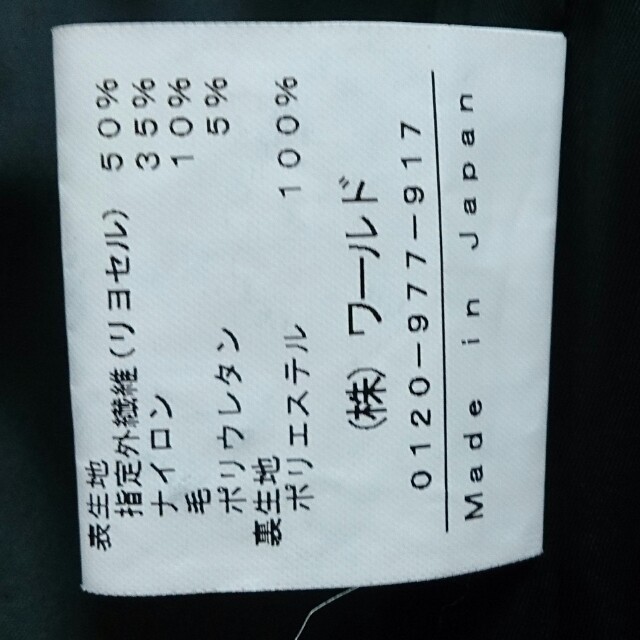 表生地
指定外繊維(リヨセル) 50%
ナイロン 35%
毛 10%
ポリウレタン 5%
裏生地
ポリエステル 100%
(株)ワールド
0120-977-917
Made in Japan